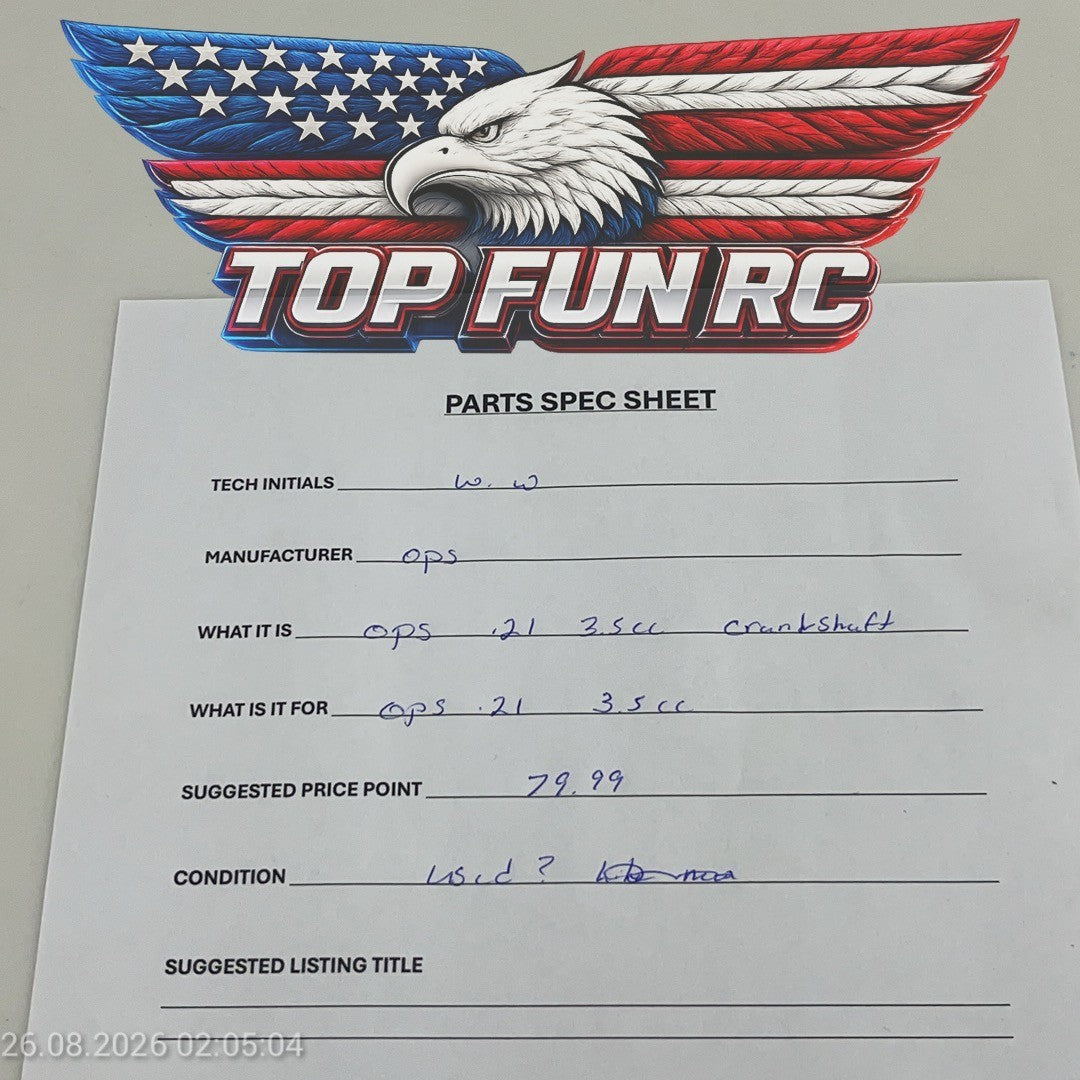 TOP FUN RC
PARTS SPEC SHEET
TECH INITIALS w. w
MANUFACTURER ops
WHAT IT IS ops .21 3.5cc crankshaft
WHAT IS IT FOR ops .21 3.5cc
SUGGESTED PRICE POINT 79.99
CONDITION used?
SUGGESTED LISTING TITLE
26.08.2026 02:05:04